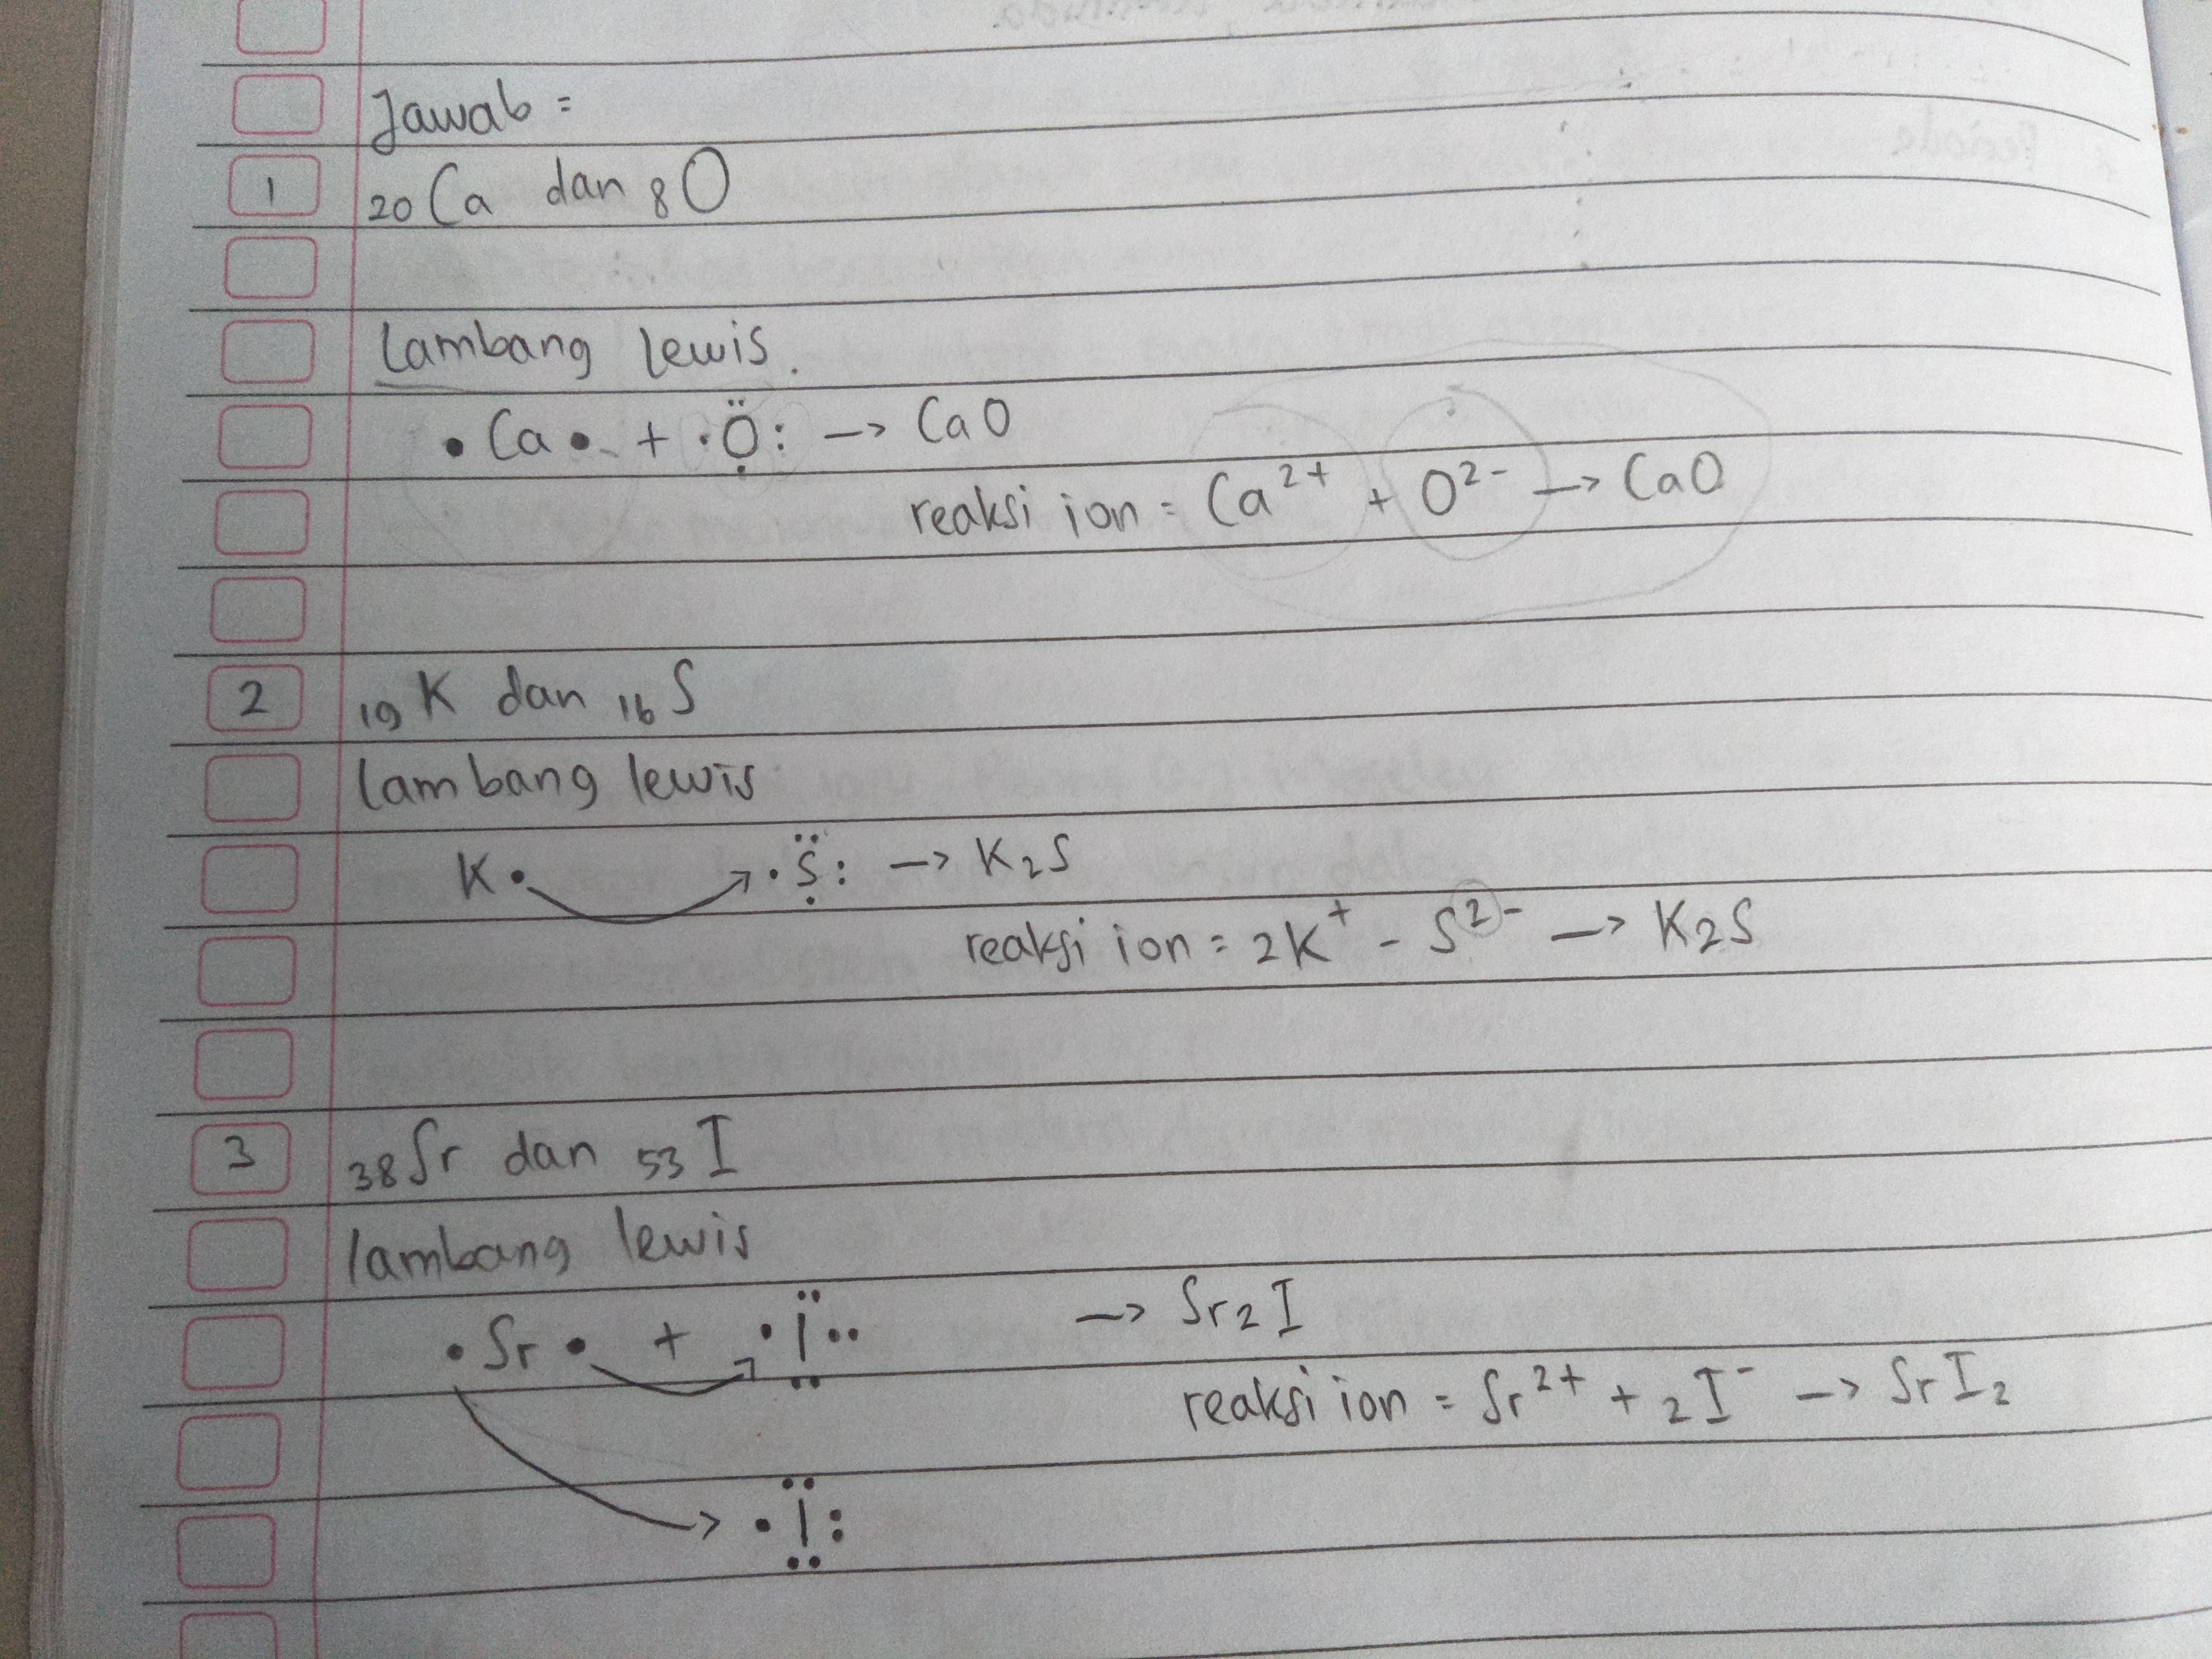 Jawab =
1 ₂₀Ca dan ₈O
Lambang lewis.
• Ca • + ·Ö: → CaO
reaksi ion = Ca²⁺ + O²⁻ → CaO
2 ₁₉K dan ₁₆S
lambang lewis
K • → ·S̈: → K₂S
reaksi ion = 2K⁺ - S²⁻ → K₂S
3 ₃₈Sr dan ₅₃I
lambang lewis
• Sr • + • I •• → Sr₂I
reaksi ion = Sr²⁺ + ₂I⁻ → SrI₂
• I :